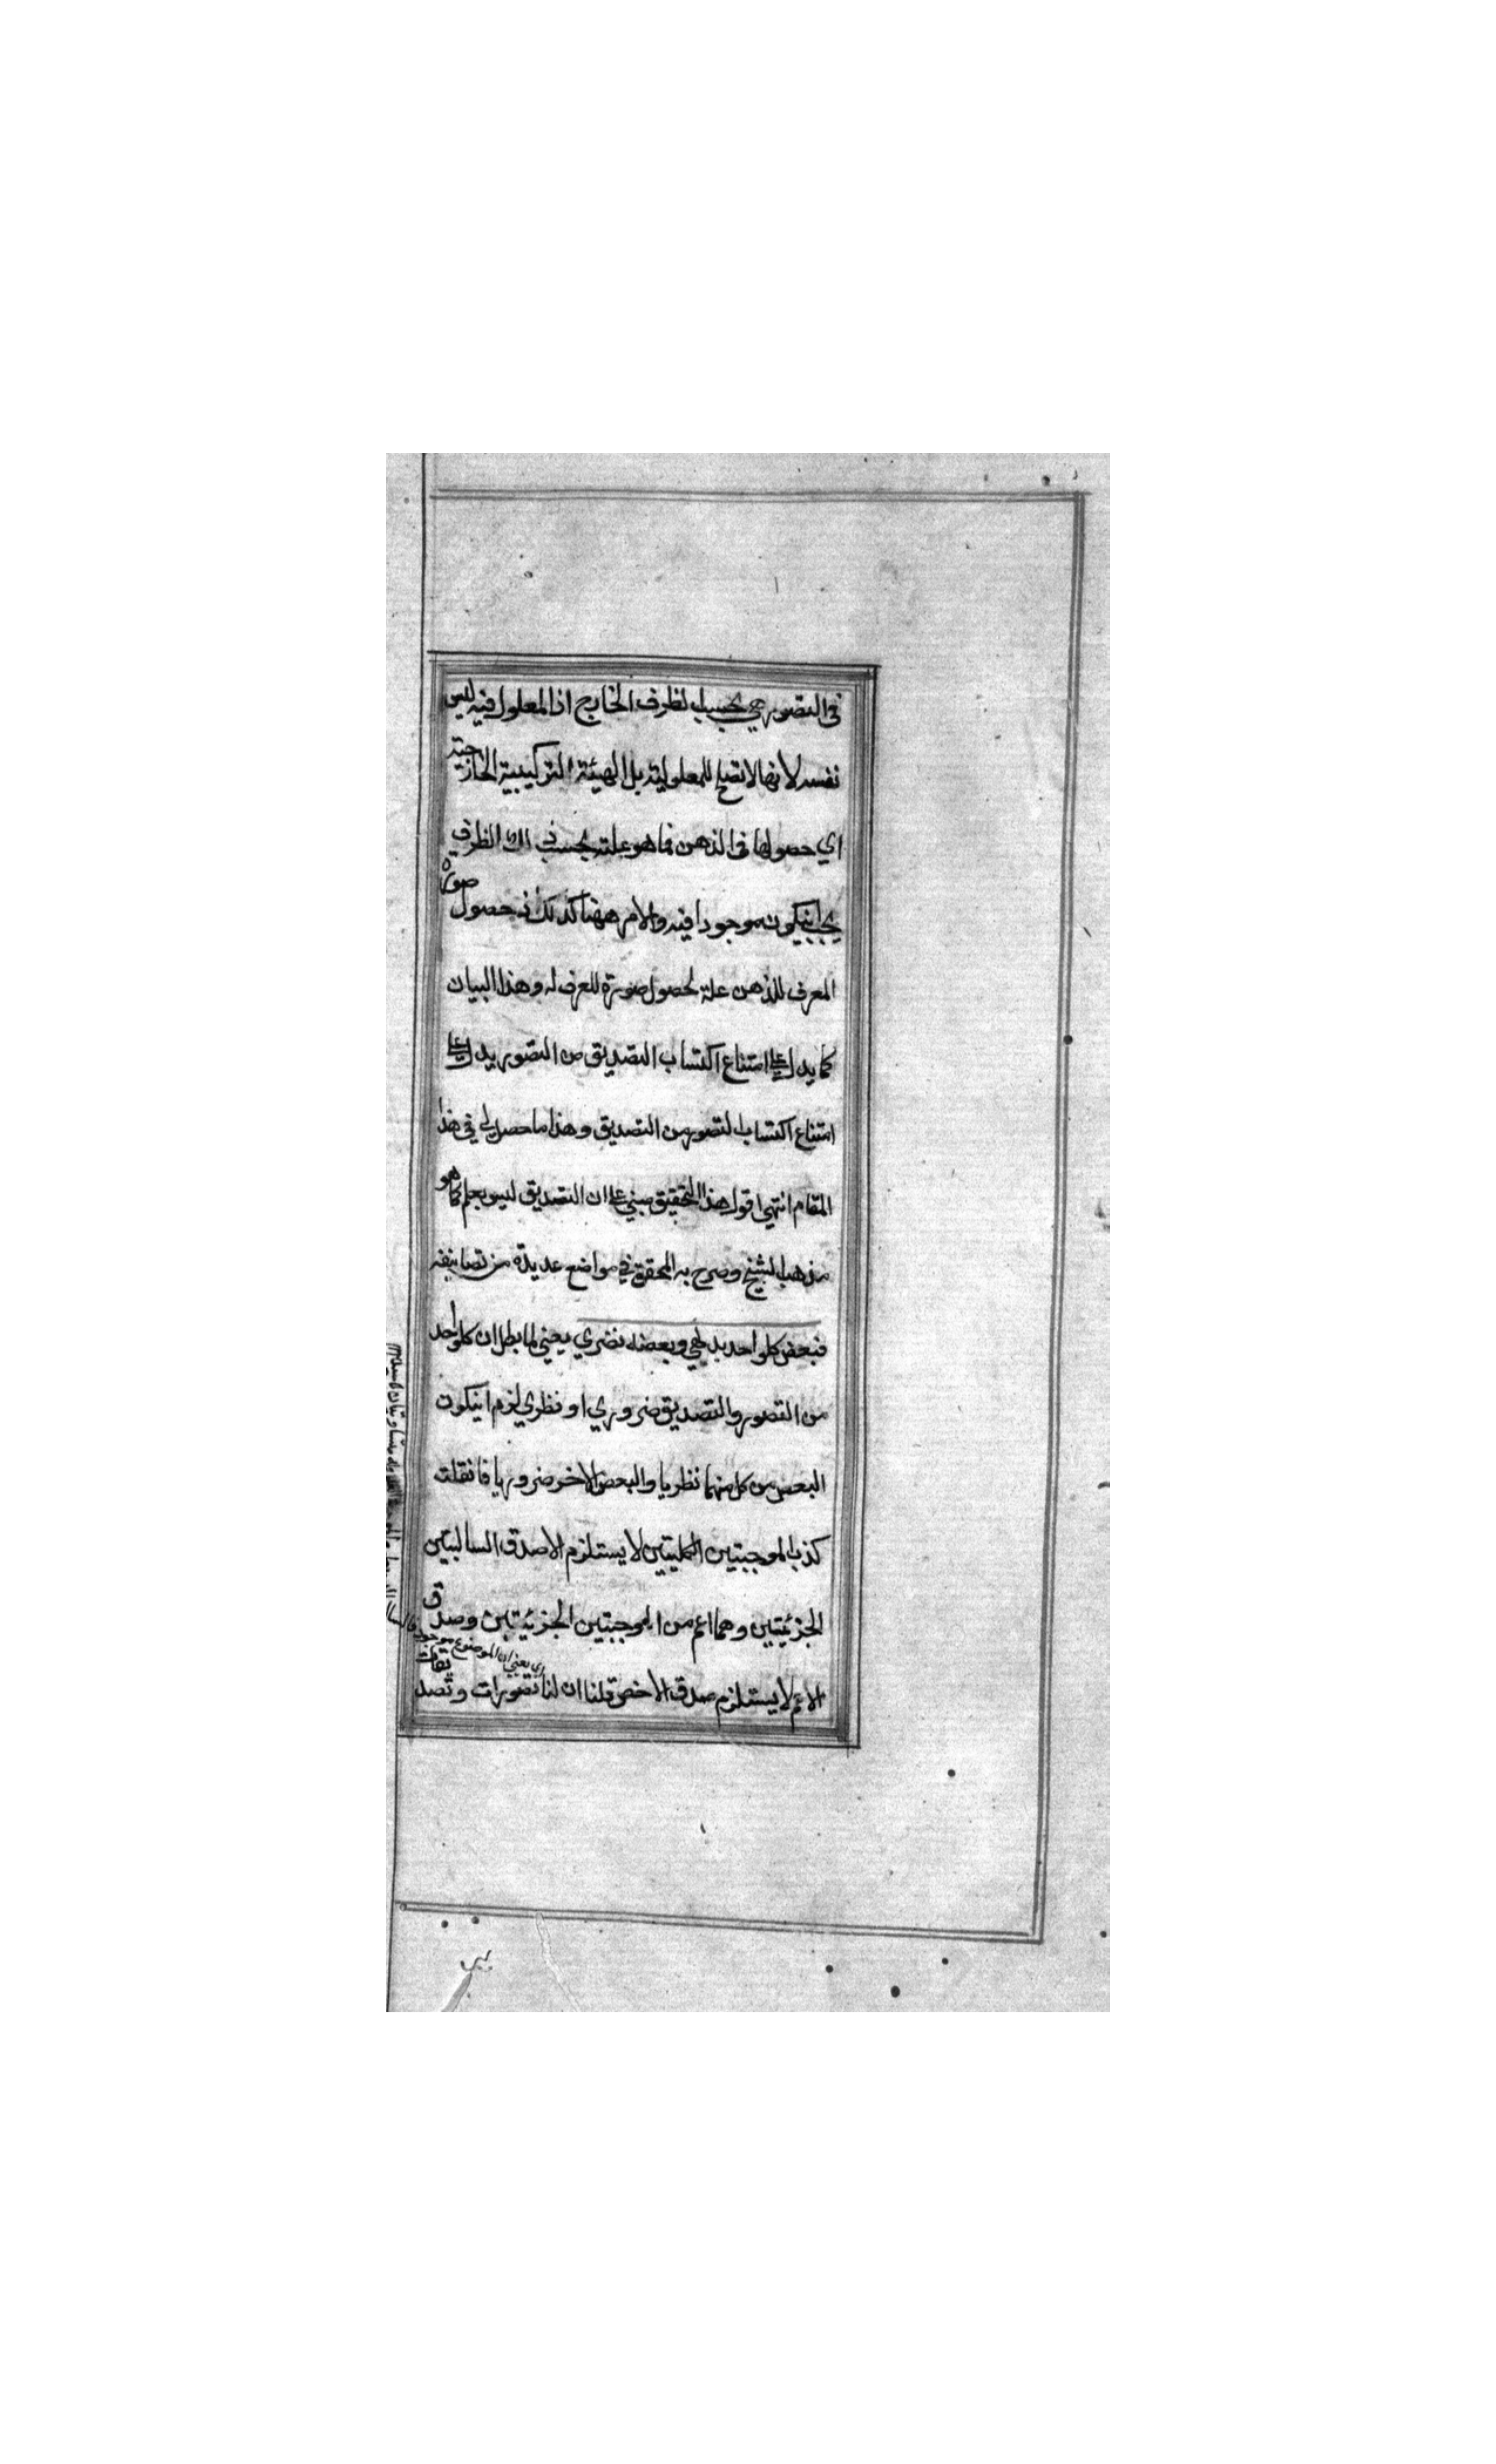 في التصور هي بحسب الظرف الخارج اذ المعلول فيه ليس
نفسه لانها لا تصلح للمعلولية بل الهيئة التركيبية الخارجية
اي حصولها في الذهن فما هو علته بحسب ذلك الظرف
يجب انيكون موجودا فيه والامر ههنا كذلك فحصول صورة
المعرف للذهن علة لحصول صورة المعرف له وهذا البيان
كما يدل على امتناع اكتساب التصديق من التصور يدل على
امتناع اكتساب التصور من التصديق وهذا ما حصل لي في هذا
المقام انتهى اقول هذا التحقيق مبني على ان التصديق ليس بعلم كما هو
مذهب الشيخ وصرح به المحقق في مواضع عديدة من تصانيفه
فبعض كل واحد بديهي وبعضه نضري يعني لما بطل ان كل واحد
من التصور والتصديق ضروري او نظري لزم انيكون
البعض من كل منهما نظريا والبعض الاخر ضروريا فانقلت
كذب الموجبتين الكليتين لا يستلزم الا صدق السالبتين
الجزئيتين وهما اعم من الموجبتين الجزئيتين وصدق
اي يعني ان الموضوع موجود
الاعم لا يستلزم صدق الاخص قلنا ان لنا تصورات وتصديقات